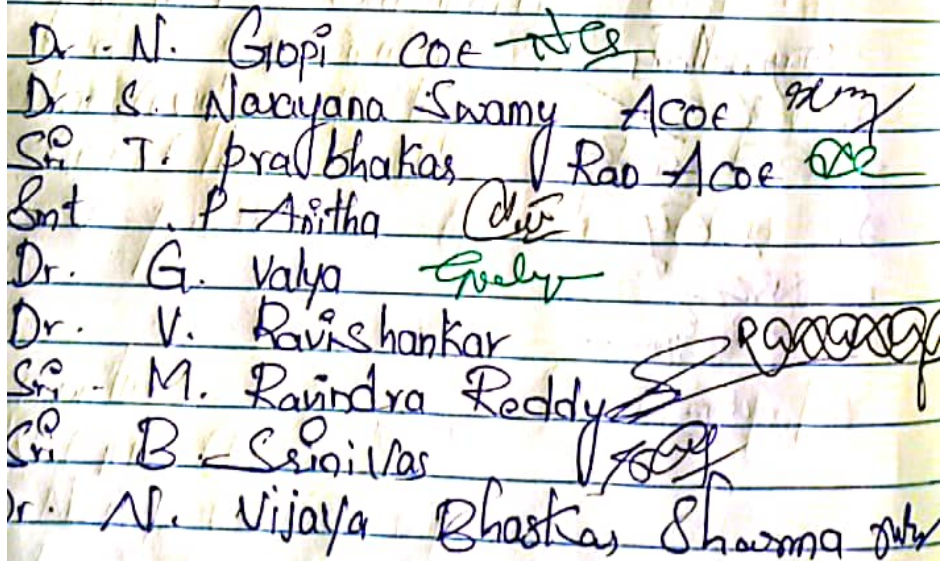 Dr. N. Gopi COE
Dr. S. Narayana Swamy ACOE
Sri T. prabhakar Rao ACOE
Smt . P Anitha
Dr. G. Valya
Dr. V. Ravishankar
Sri. M. Ravindra Reddy
Sri B. Srinivas
Dr. N. Vijaya Bhaskar Sharma